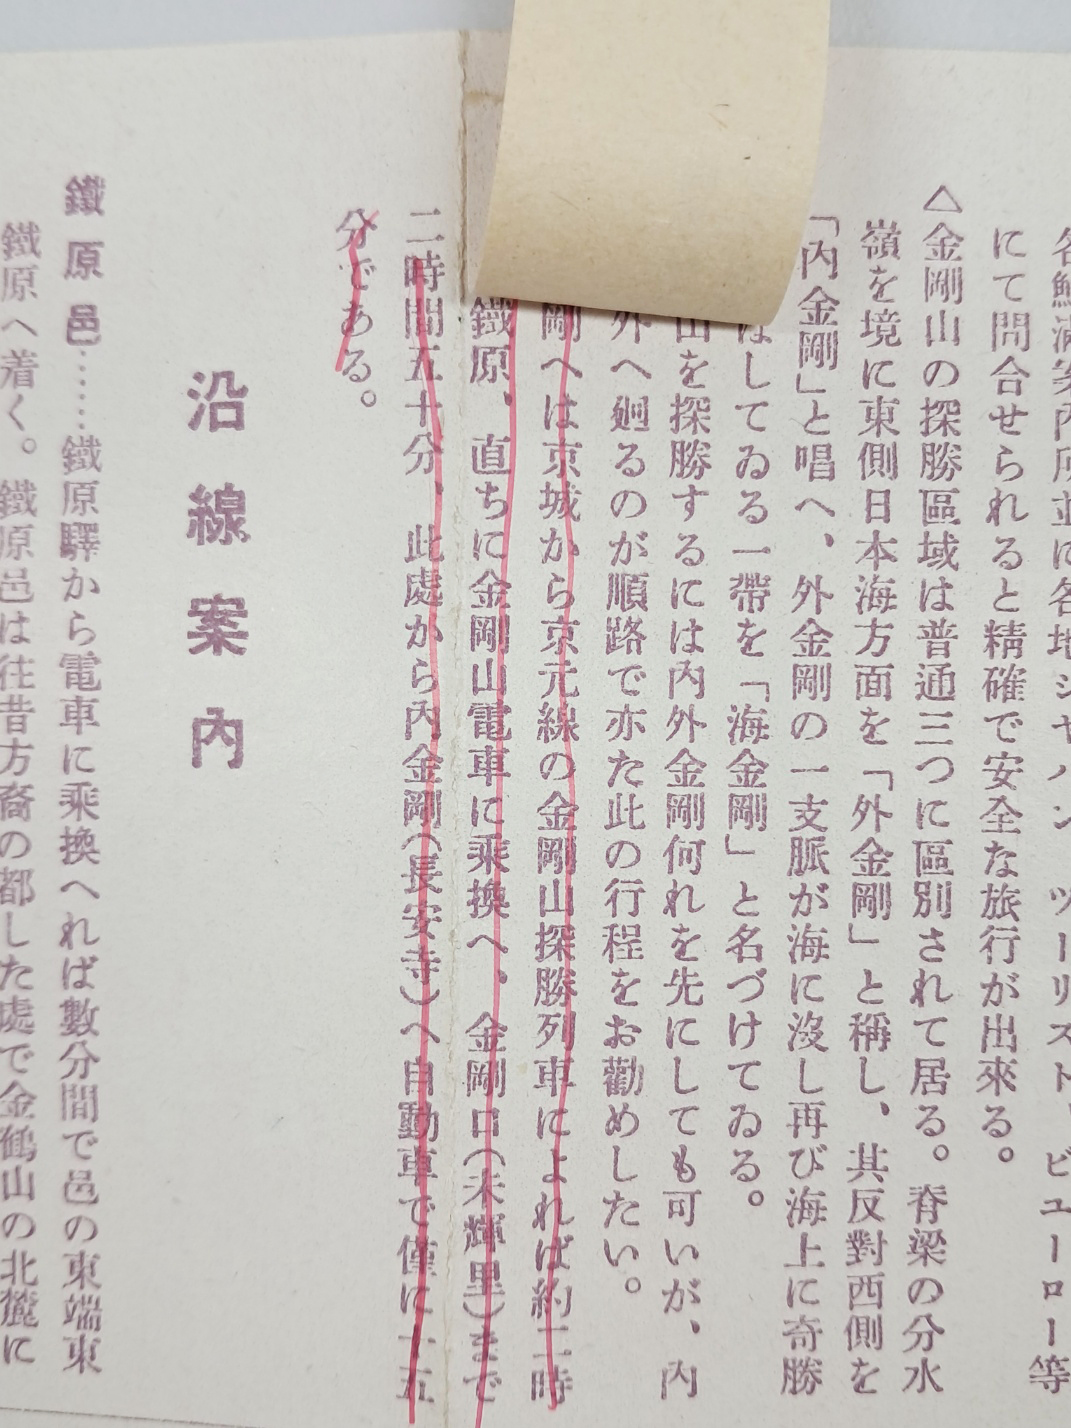 にて問合せられると精確で安全な旅行が出來る。
△金剛山の探勝區域は普通三つに區別されて居る。脊梁の分水
嶺を境に東側日本海方面を「外金剛」と稱し、其反對西側を
「內金剛」と唱へ、外金剛の一支脈が海に沒し再び海上に奇勝
はしてゐる一帶を「海金剛」と名づけてゐる。
山を探勝するには內外金剛何れを先にしても可いが、內
外へ廻るのが順路で亦た此の行程をお勸めしたい。
剛へは京城から京元線の金剛山探勝列車によれば約二時
鐵原、直ちに金剛山電車に乘換へ、金剛口(末輝里)まで
二時間五十分、此處から內金剛(長安寺)へ自動車で僅に十五
分である。
沿線案內
鐵原邑……鐵原驛から電車に乘換へれば數分間で邑の東端東
鐵原へ着く。鐵原邑は往昔方裔の都した處で金鶴山の北麓に